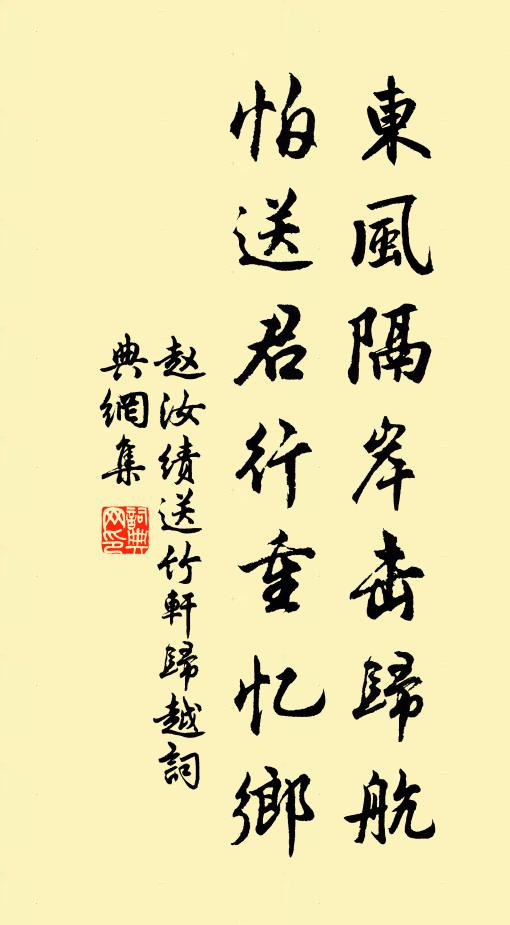 東風隔岸击歸航
怕送君行重忆鄉
赵汝績送竹軒歸越詞
典網集
詞典网印